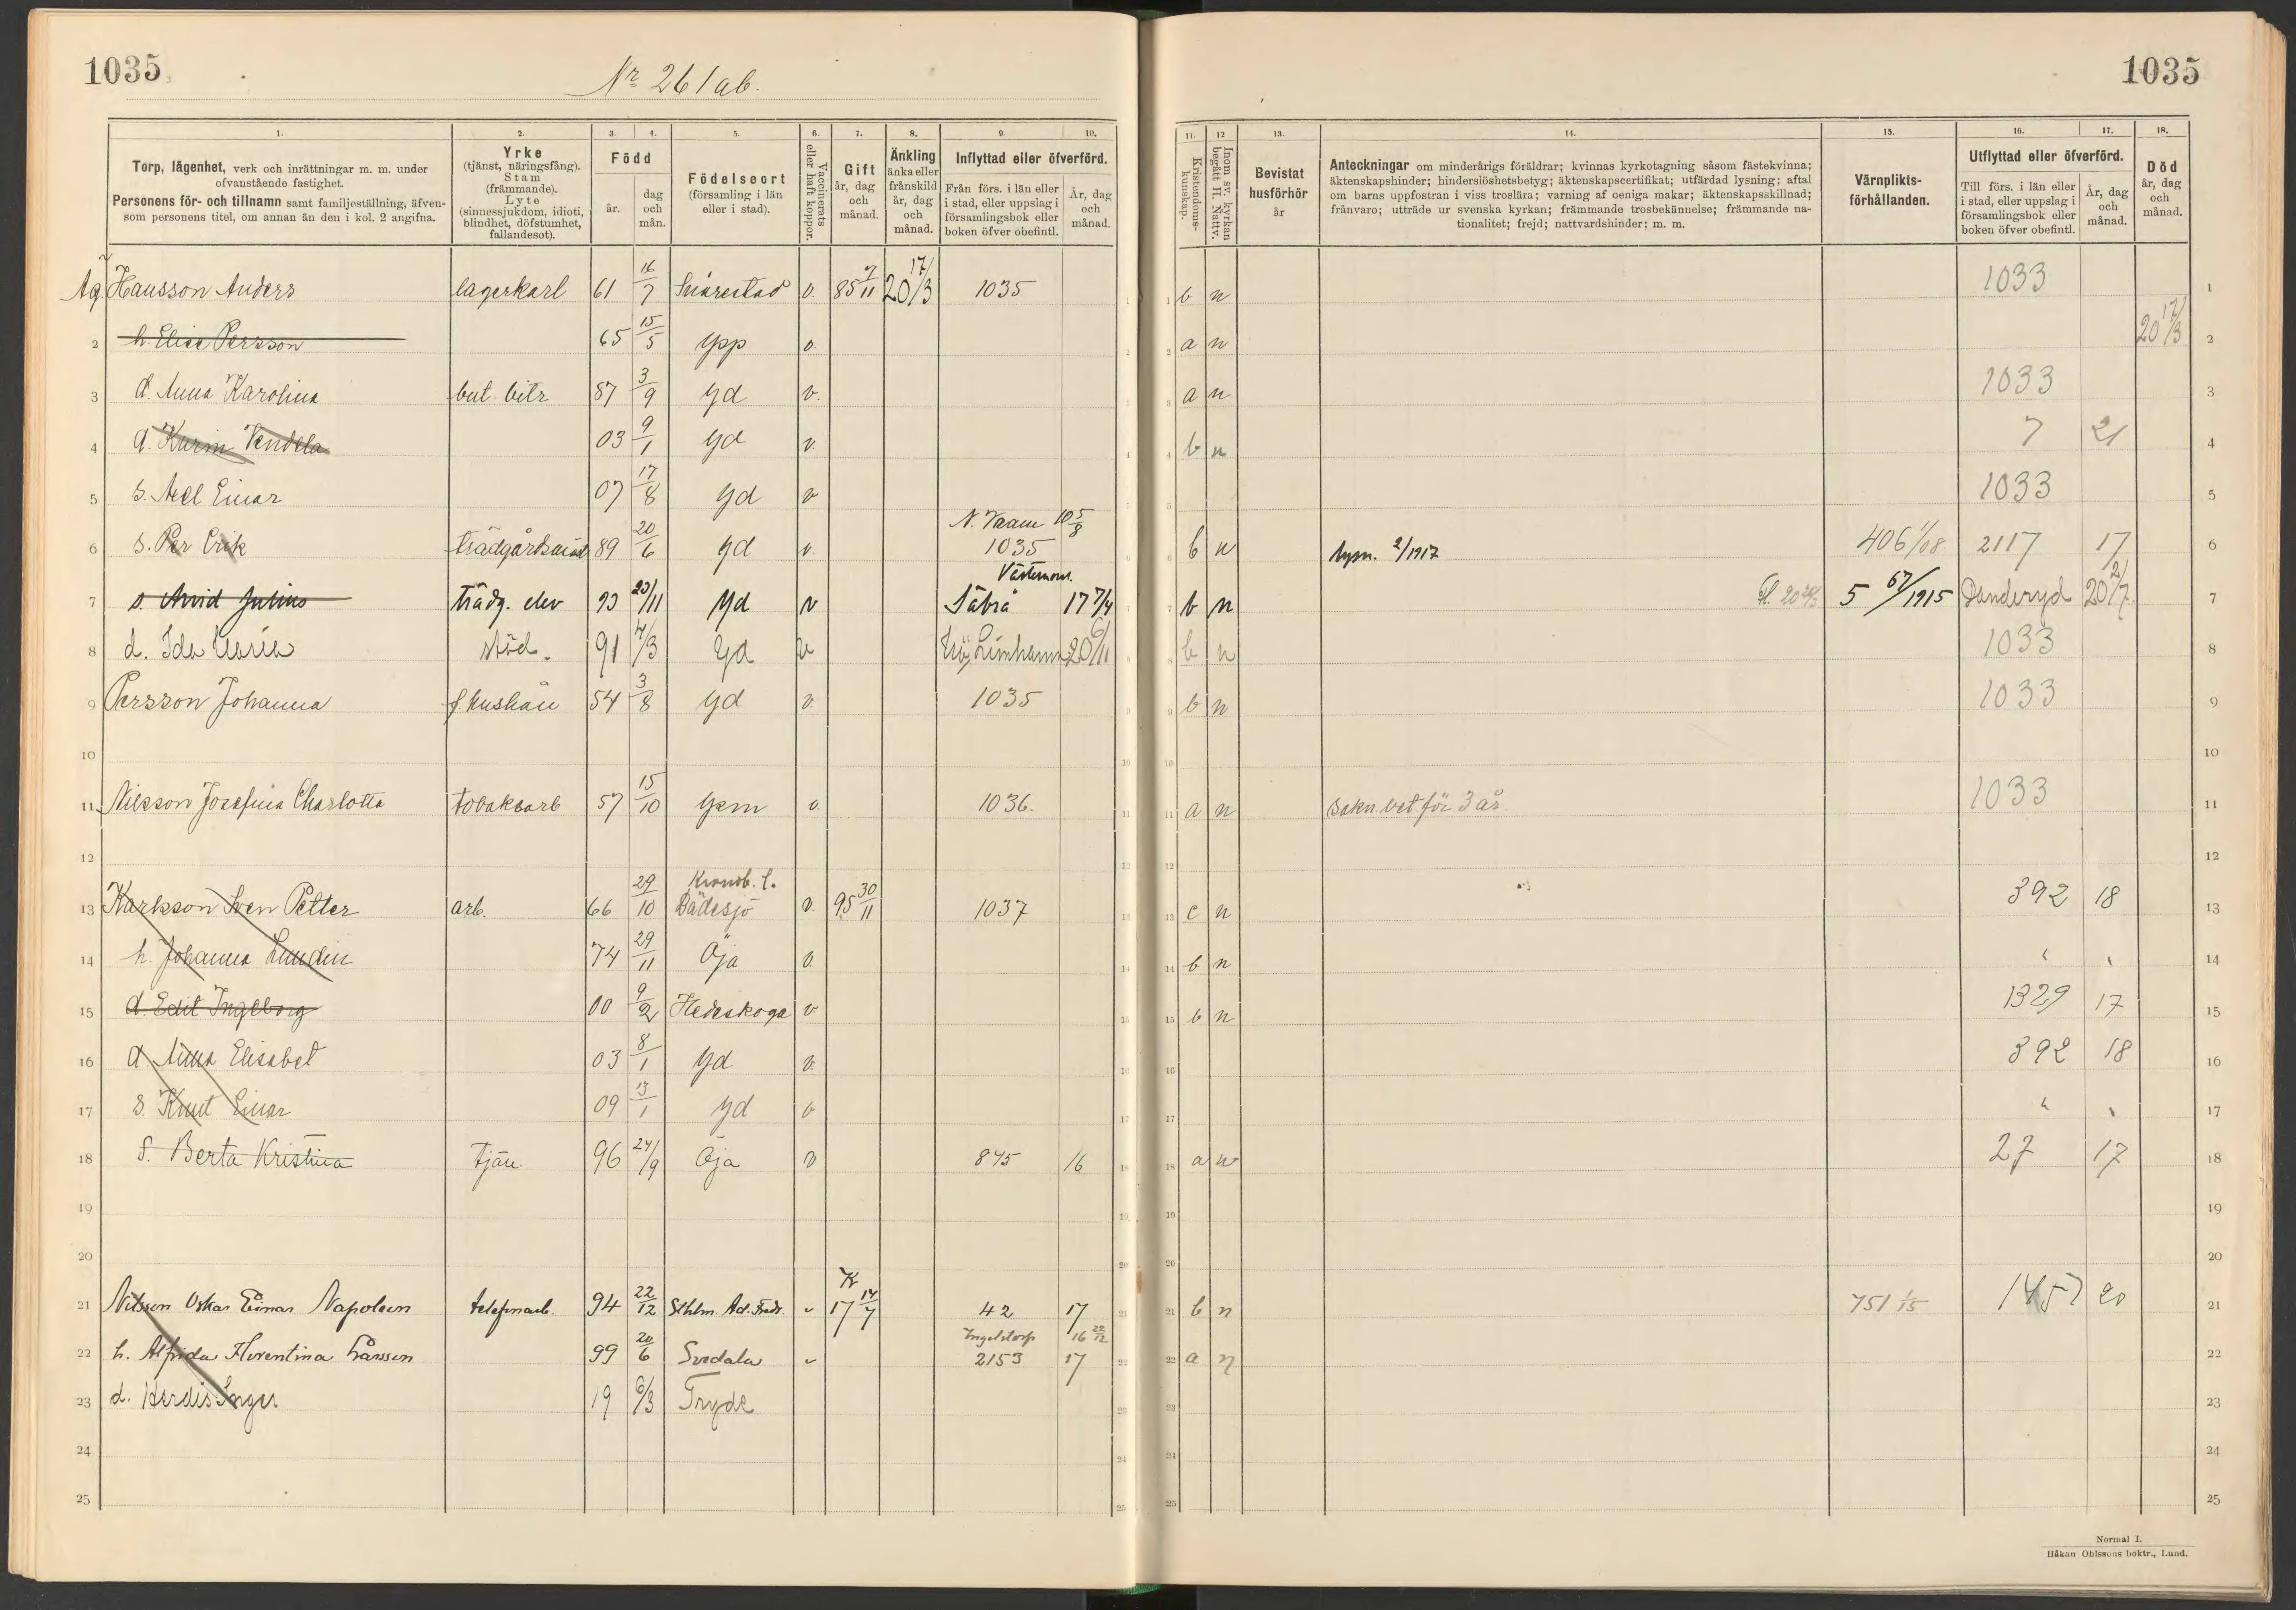 1035
Nr 261ab.
1035
1. 2. 3. 4. 5. 6. 7. 8. 9. 10.
Torp, lägenhet, verk och inrättningar m. m. under
ofvanstående fastighet.
Personens för- och tillnamn samt familjeställning, äfven-
som personens titel, om annan än den i kol. 2 angifna.
Yrke
(tjänst, näringsfång).
Stam
(främmande).
Lyte
(sinnessjukdom, idioti,
blindhet, döfstumhet,
fallandesot).
Född
år.
dag
och
mån.
Födelseort
(församling i län
eller i stad).
Vaccinerats
eller haft koppor.
Gift
år, dag
och
månad.
Änkling
änka eller
frånskild
år, dag
och
månad.
Inflyttad eller öfverförd.
Från förs. i län eller
i stad, eller uppslag i
församlingsbok eller
boken öfver obefintl.
År, dag
och
månad.
11. 12 13. 14. 15. 16. 17. 18.
Kristendoms-
kunskap.
Inom sv. kyrkan
begått H. Nattv.
Bevistat
husförhör
år
Anteckningar om minderårigs föräldrar; kvinnas kyrkotagning såsom fästekvinna;
äktenskapshinder; hinderslöshetsbetyg; äktenskapscertifikat; utfärdad lysning; aftal
om barns uppfostran i viss troslära; varning af oeniga makar; äktenskapsskillnad;
frånvaro; utträde ur svenska kyrkan; främmande trosbekännelse; främmande na-
tionalitet; frejd; nattvardshinder; m. m.
Värnplikts-
förhållanden.
Utflyttad eller öfverförd.
Till förs. i län eller
i stad, eller uppslag i
församlingsbok eller
boken öfver obefintl.
År, dag
och
månad.
Död
år, dag
och
månad.
Hansson Anders lagerkarl 61 16/7 Snårestad v. 85 20 17/3 1035 1 b n 1033 1
2 h. Elise Persson 65 15/5 Ypp v. 2 a n 20 17/3 2
3 d. Anna Karolina but. bitr 87 3/9 Yd v. 3 a n 1033 3
4 d. Karin Vendela 03 9/1 Yd v. 4 b n 7 21 4
5 s. Axel Einar 07 17/8 Yd v 5 1033 5
6 s. Per Erik 89 20/6 Yd v. 10 5/8 1035 6 b n 2/1917 406 1/08 2117 17 6
7 s. Arvid Julius trädg. elev 93 23/11 Yd v Säbrå 17 7/4 7 b n 5 67/1915 Danderyd 20 2/7 7
8 d. Ida Maria städ. 91 4/3 Yd v Limhamn 20 6/11 8 b n 1033 8
9 Persson Johanna f hushån 54 3/8 Yd v. 1035 9 b n 1033 9
10 10
11 Nilsson Josefina Charlotta tobaksarb 57 15/10 Ysm v. 1036. 11 a n sakn. bet för 3 år 1033 11
12 12
13 Karlsson Sven Petter arb. 66 29/10 Kronob. l. Dädesjö v. 95 30/11 1037 13 c n 392 18 13
14 h. Johanna Lundin 74 29/11 Öja v. 14 b n " " 14
15 d. Edit Ingeborg 00 9/2 Hedeskoga v 15 b n 1329 17 15
16 d. Anna Elisabet 03 8/1 Yd v. 16 392 18 16
17 s. Knut Einar 09 13/1 Yd v 17 " " 17
18 Berta Kristina tjän. 96 24/9 Öja v 845 16 18 a n 27 17 18
19 19
20 20
21 Nilsson Oskar Einar Napoleon telefonarb. 94 22/12 Sthlm. Ad. Fredr. v K 17 14/7 42 17 21 b n 751 1/15 1457 20 21
22 h. Alfrida Florentina Larsson 99 20/6 Svedala v Ingelstorp 16 22/12 2153 17 22 a n 22
23 d. Herdis Inger 19 6/3 Tryde 23 23
24 24
25 25
Normal I.
Håkan Ohlssons boktr., Lund.